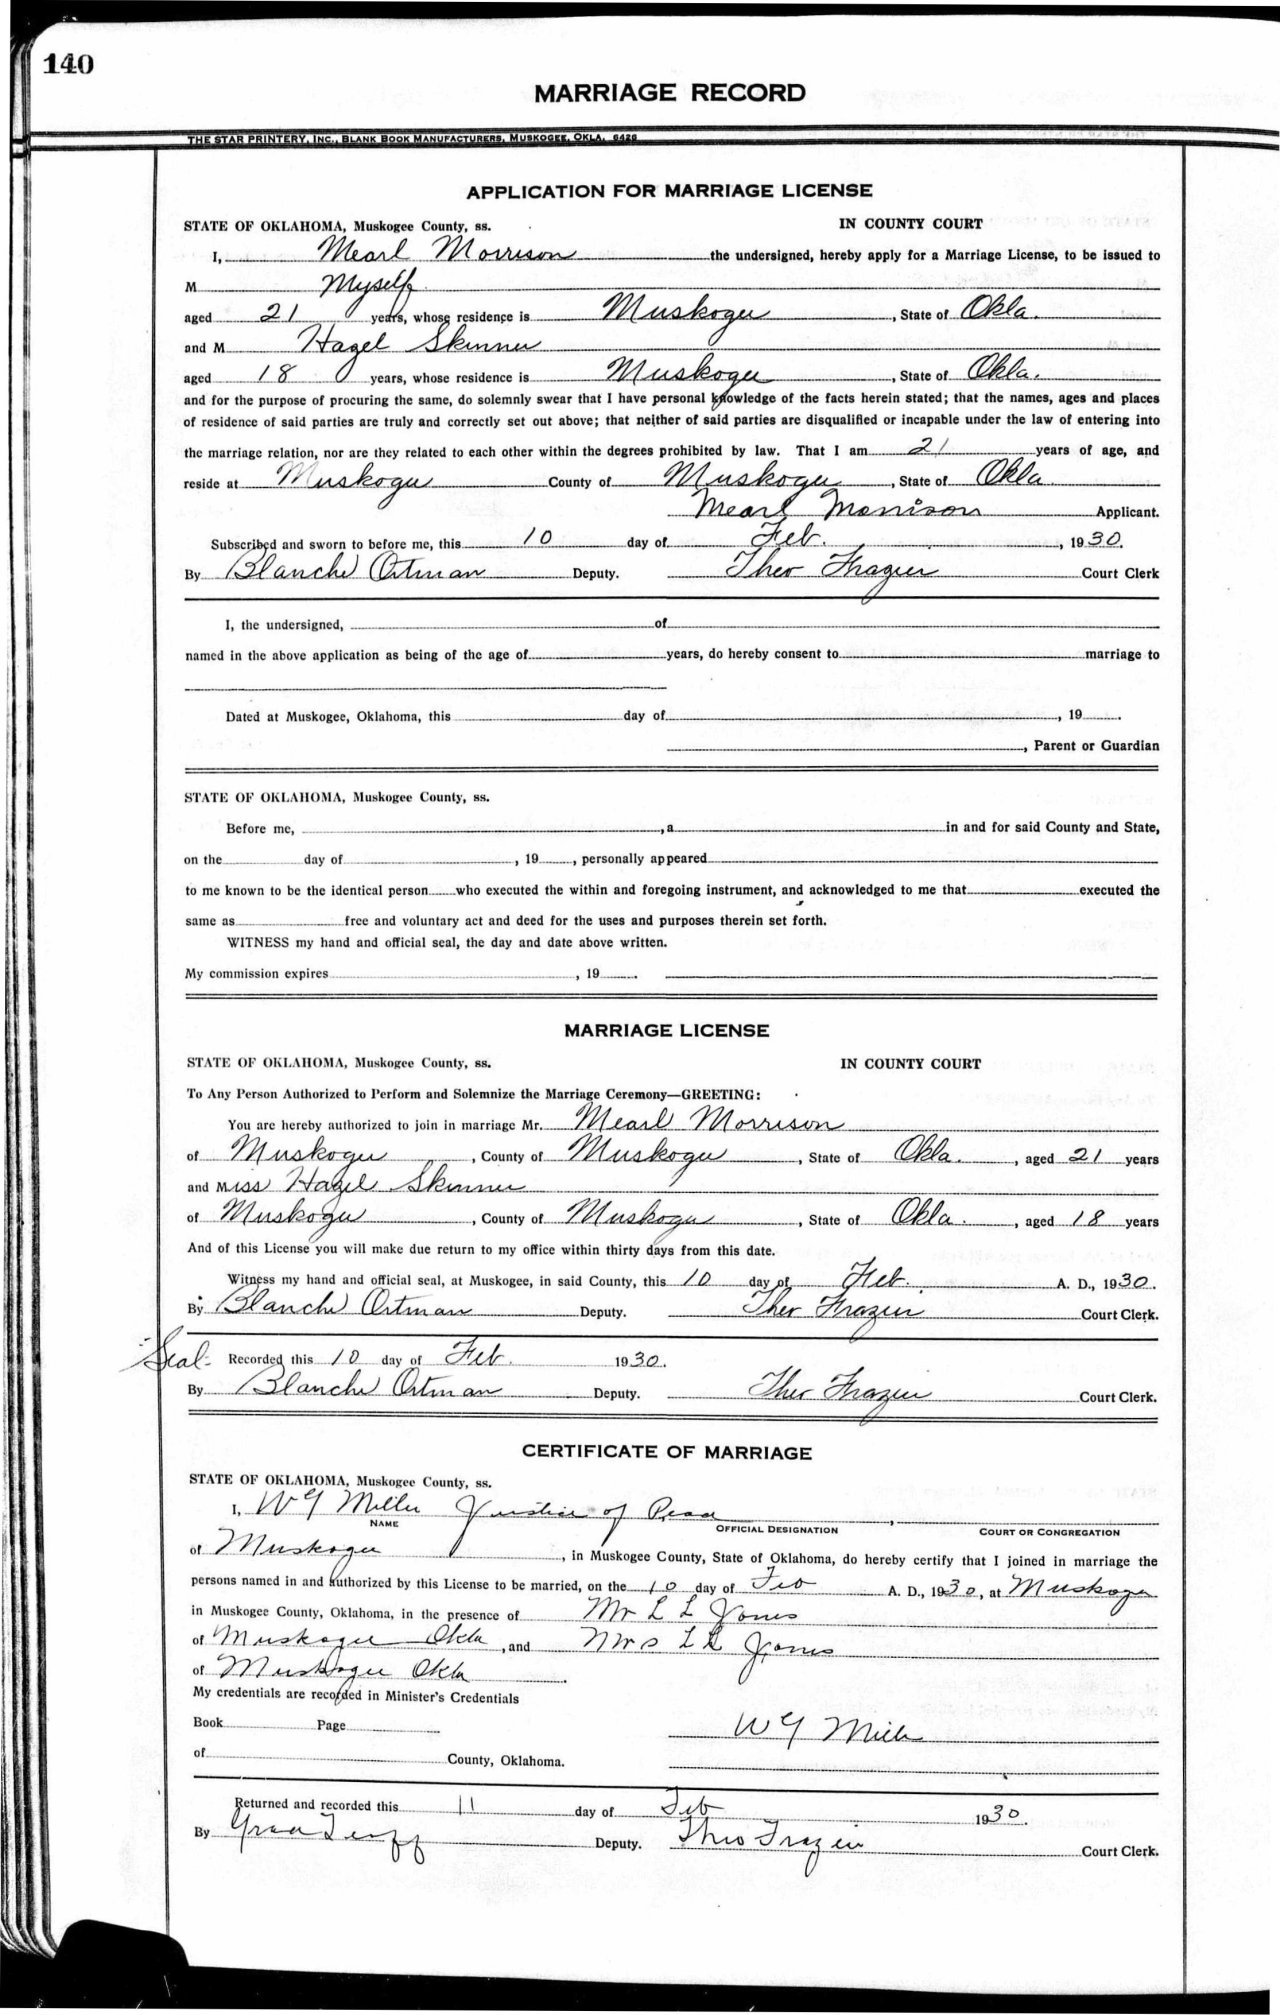 140
MARRIAGE RECORD
THE STAR PRINTERY, INC., BLANK BOOK MANUFACTURERS, MUSKOGEE, OKLA. 6426
APPLICATION FOR MARRIAGE LICENSE
STATE OF OKLAHOMA, Muskogee County, ss. IN COUNTY COURT
I, Mearl Morrison the undersigned, hereby apply for a Marriage License, to be issued to
M Myself
aged 21 years, whose residence is Muskogee, State of Okla.
and M Hazel Skinner
aged 18 years, whose residence is Muskogee, State of Okla.
and for the purpose of procuring the same, do solemnly swear that I have personal knowledge of the facts herein stated; that the names, ages and places
of residence of said parties are truly and correctly set out above; that neither of said parties are disqualified or incapable under the law of entering into
the marriage relation, nor are they related to each other within the degrees prohibited by law. That I am 21 years of age, and
reside at Muskogee County of Muskogee, State of Okla
Mearl Morrison Applicant.
Subscribed and sworn to before me, this 10 day of Feb., 1930.
By Blanche Ortman Deputy. Theo Frazier Court Clerk
I, the undersigned, of
named in the above application as being of the age of years, do hereby consent to marriage to
Dated at Muskogee, Oklahoma, this day of , 19 .
, Parent or Guardian
STATE OF OKLAHOMA, Muskogee County, ss.
Before me, , a in and for said County and State,
on the day of , 19 , personally appeared
to me known to be the identical person who executed the within and foregoing instrument, and acknowledged to me that executed the
same as free and voluntary act and deed for the uses and purposes therein set forth.
WITNESS my hand and official seal, the day and date above written.
My commission expires , 19 .
MARRIAGE LICENSE
STATE OF OKLAHOMA, Muskogee County, ss. IN COUNTY COURT
To Any Person Authorized to Perform and Solemnize the Marriage Ceremony—GREETING:
You are hereby authorized to join in marriage Mr. Mearl Morrison
of Muskogee, County of Muskogee, State of Okla., aged 21 years
and Miss Hazel Skinner
of Muskogee, County of Muskogee, State of Okla., aged 18 years
And of this License you will make due return to my office within thirty days from this date.
Witness my hand and official seal, at Muskogee, in said County, this 10 day of Feb. A. D., 1930.
By Blanche Ortman Deputy. Theo Frazier Court Clerk.
Seal- Recorded this 10 day of Feb. 1930.
By Blanche Ortman Deputy. Theo Frazier Court Clerk.
CERTIFICATE OF MARRIAGE
STATE OF OKLAHOMA, Muskogee County, ss.
I, W G Miller Justice of Peace ,
NAME OFFICIAL DESIGNATION COURT OR CONGREGATION
of Muskogee, in Muskogee County, State of Oklahoma, do hereby certify that I joined in marriage the
persons named in and authorized by this License to be married, on the 10 day of Feb A. D., 1930, at Muskogee
in Muskogee County, Oklahoma, in the presence of Mr L L Jones
of Muskogee Okla, and Mrs L L Jones
of Muskogee Okla.
My credentials are recorded in Minister's Credentials
Book Page W G Miller
of County, Oklahoma.
Returned and recorded this 11 day of Feb 1930.
By Deputy. Theo Frazier Court Clerk.